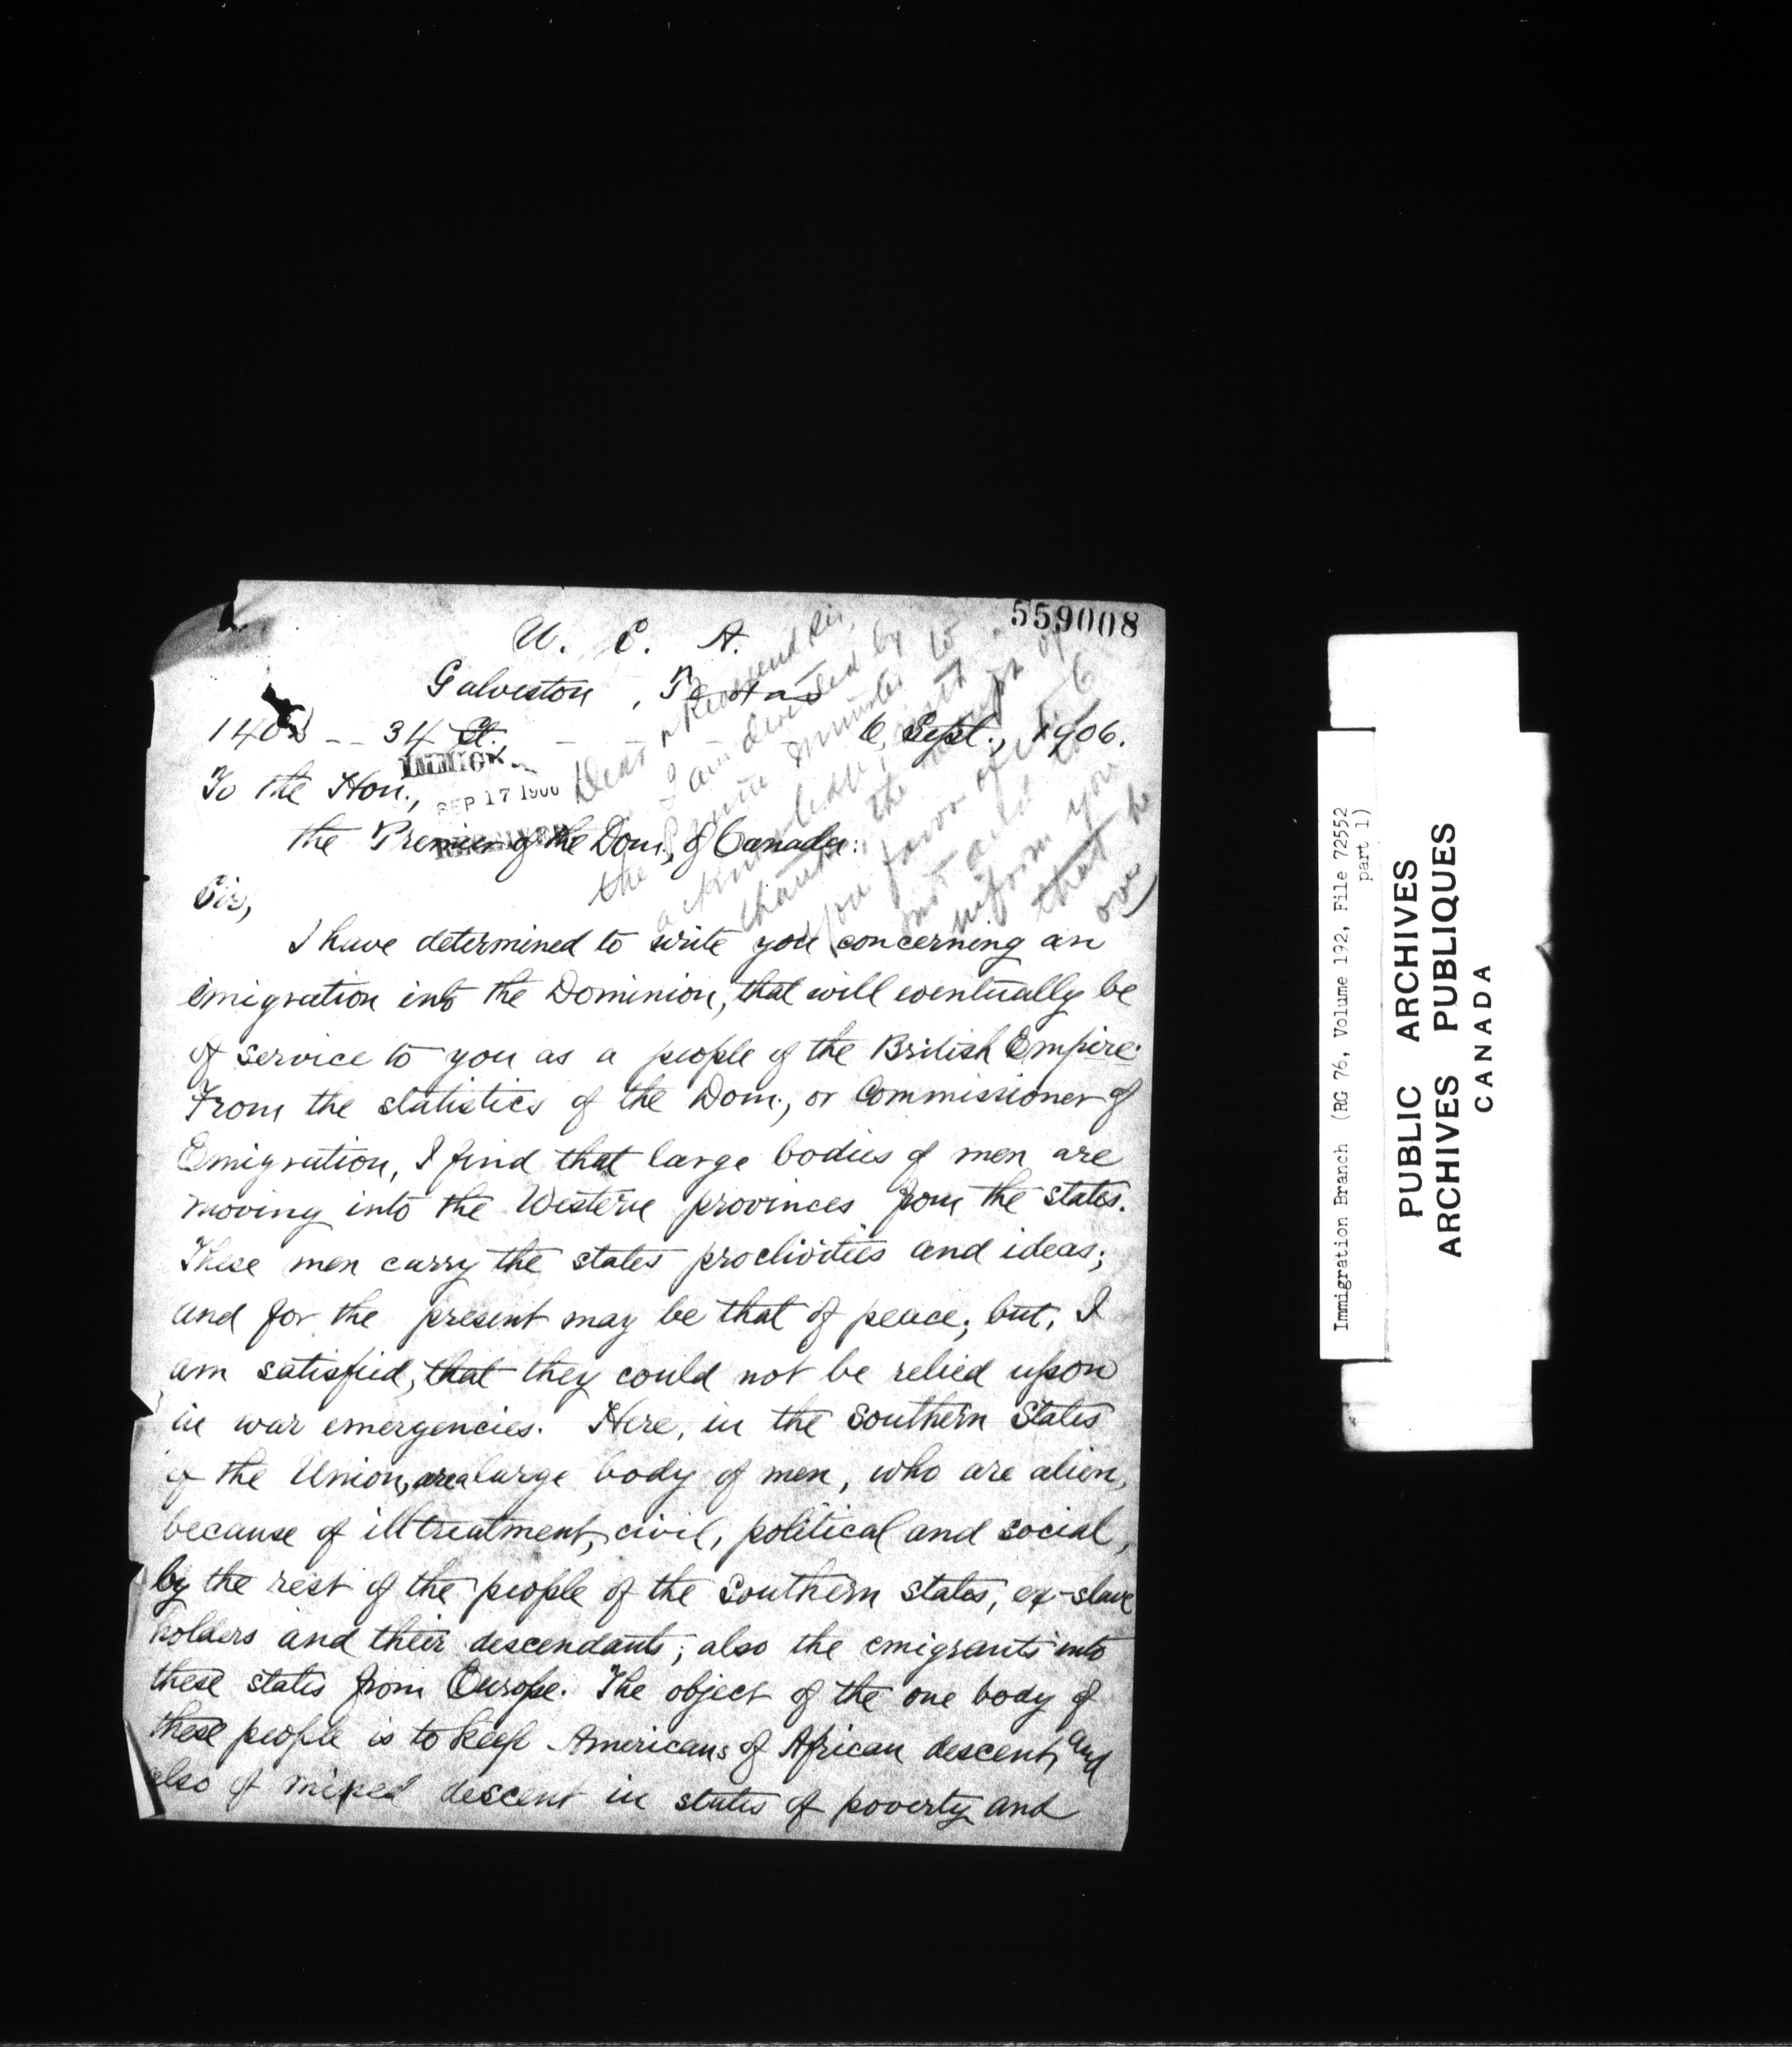 559008
U. S. A.
Galveston, Texas
1408 -- 34 St. - - - 6 Sept., 1906.
IMMIGR
To the Hon.,
SEP 17 1906
the Premier of the Dom., of Canada:
RECEIVED
Sir,
I have determined to write you concerning an
emigration into the Dominion, that will eventually be
of service to you as a people of the British Empire.
From the statistics of the Dom., or Commissioner of
Emigration, I find that large bodies of men are
moving into the Western provinces from the states.
These men carry the states proclivities and ideas;
and for the present may be that of peace; but, I
am satisfied, that they could not be relied upon
in war emergencies. Here, in the Southern States
of the Union, are a large body of men, who are alien,
because of ill treatment, civil, political and social,
by the rest of the people of the Southern states, ex-slave
holders and their descendants; also the emigrants into
these states from Europe. The object of the one body of
these people is to keep Americans of African descent, and
also of mixed descent in states of poverty and
Dear Reverend Sir,
I am directed by
the Prime Minister to
acknowledge, with
thanks, the receipt of
your favor of the 6
inst and to
inform you
that he
over
Immigration Branch (RG 76, Volume 192, File 72552
part 1)
PUBLIC ARCHIVES
ARCHIVES PUBLIQUES
CANADA